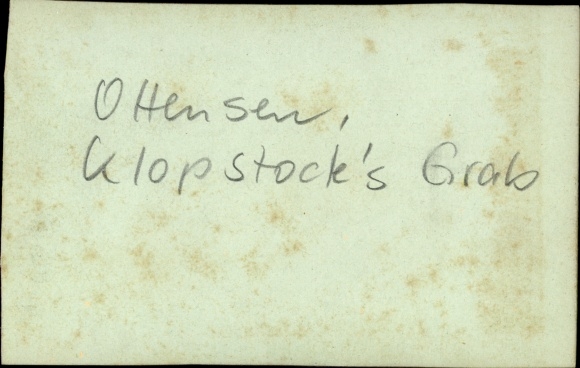 Ottensen,
Klopstock's Grab